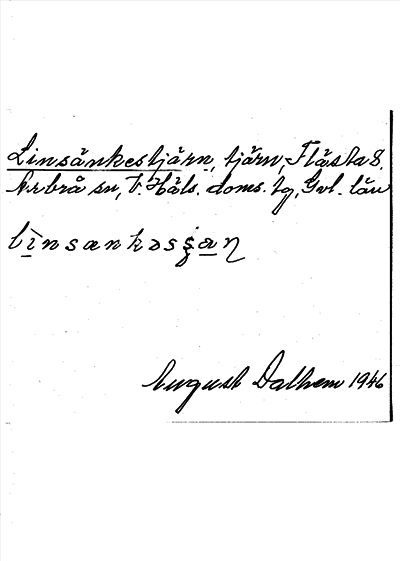 Linsänkestjärn, tjärn, Flästa 8.
Arbrå sn, V. Häls. doms. tg, Gvl. län
lìnsænkəsʂæɳ
August Dalhem 1946